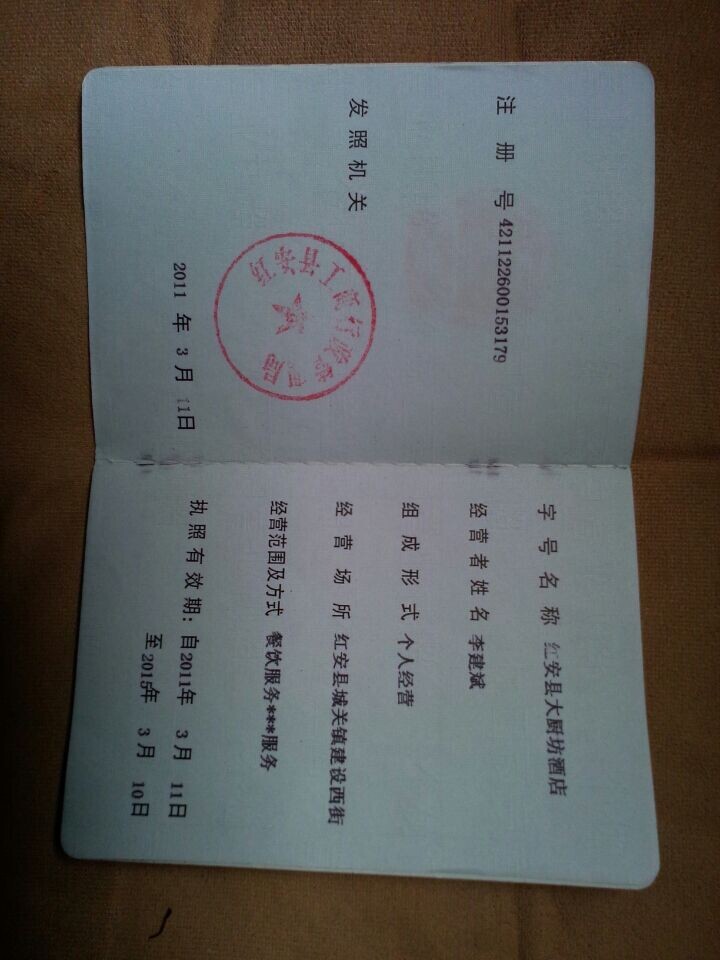 注册号 421122600153179
发照机关
2011 年 3 月 11日
字号名称 红安县大厨坊酒店
经营者姓名 李建斌
组成形式 个人经营
经营场所 红安县城关镇建设西街
经营范围及方式 餐饮服务***服务
执照有效期：自2011年 3 月 11日
至2015年 3 月 10日